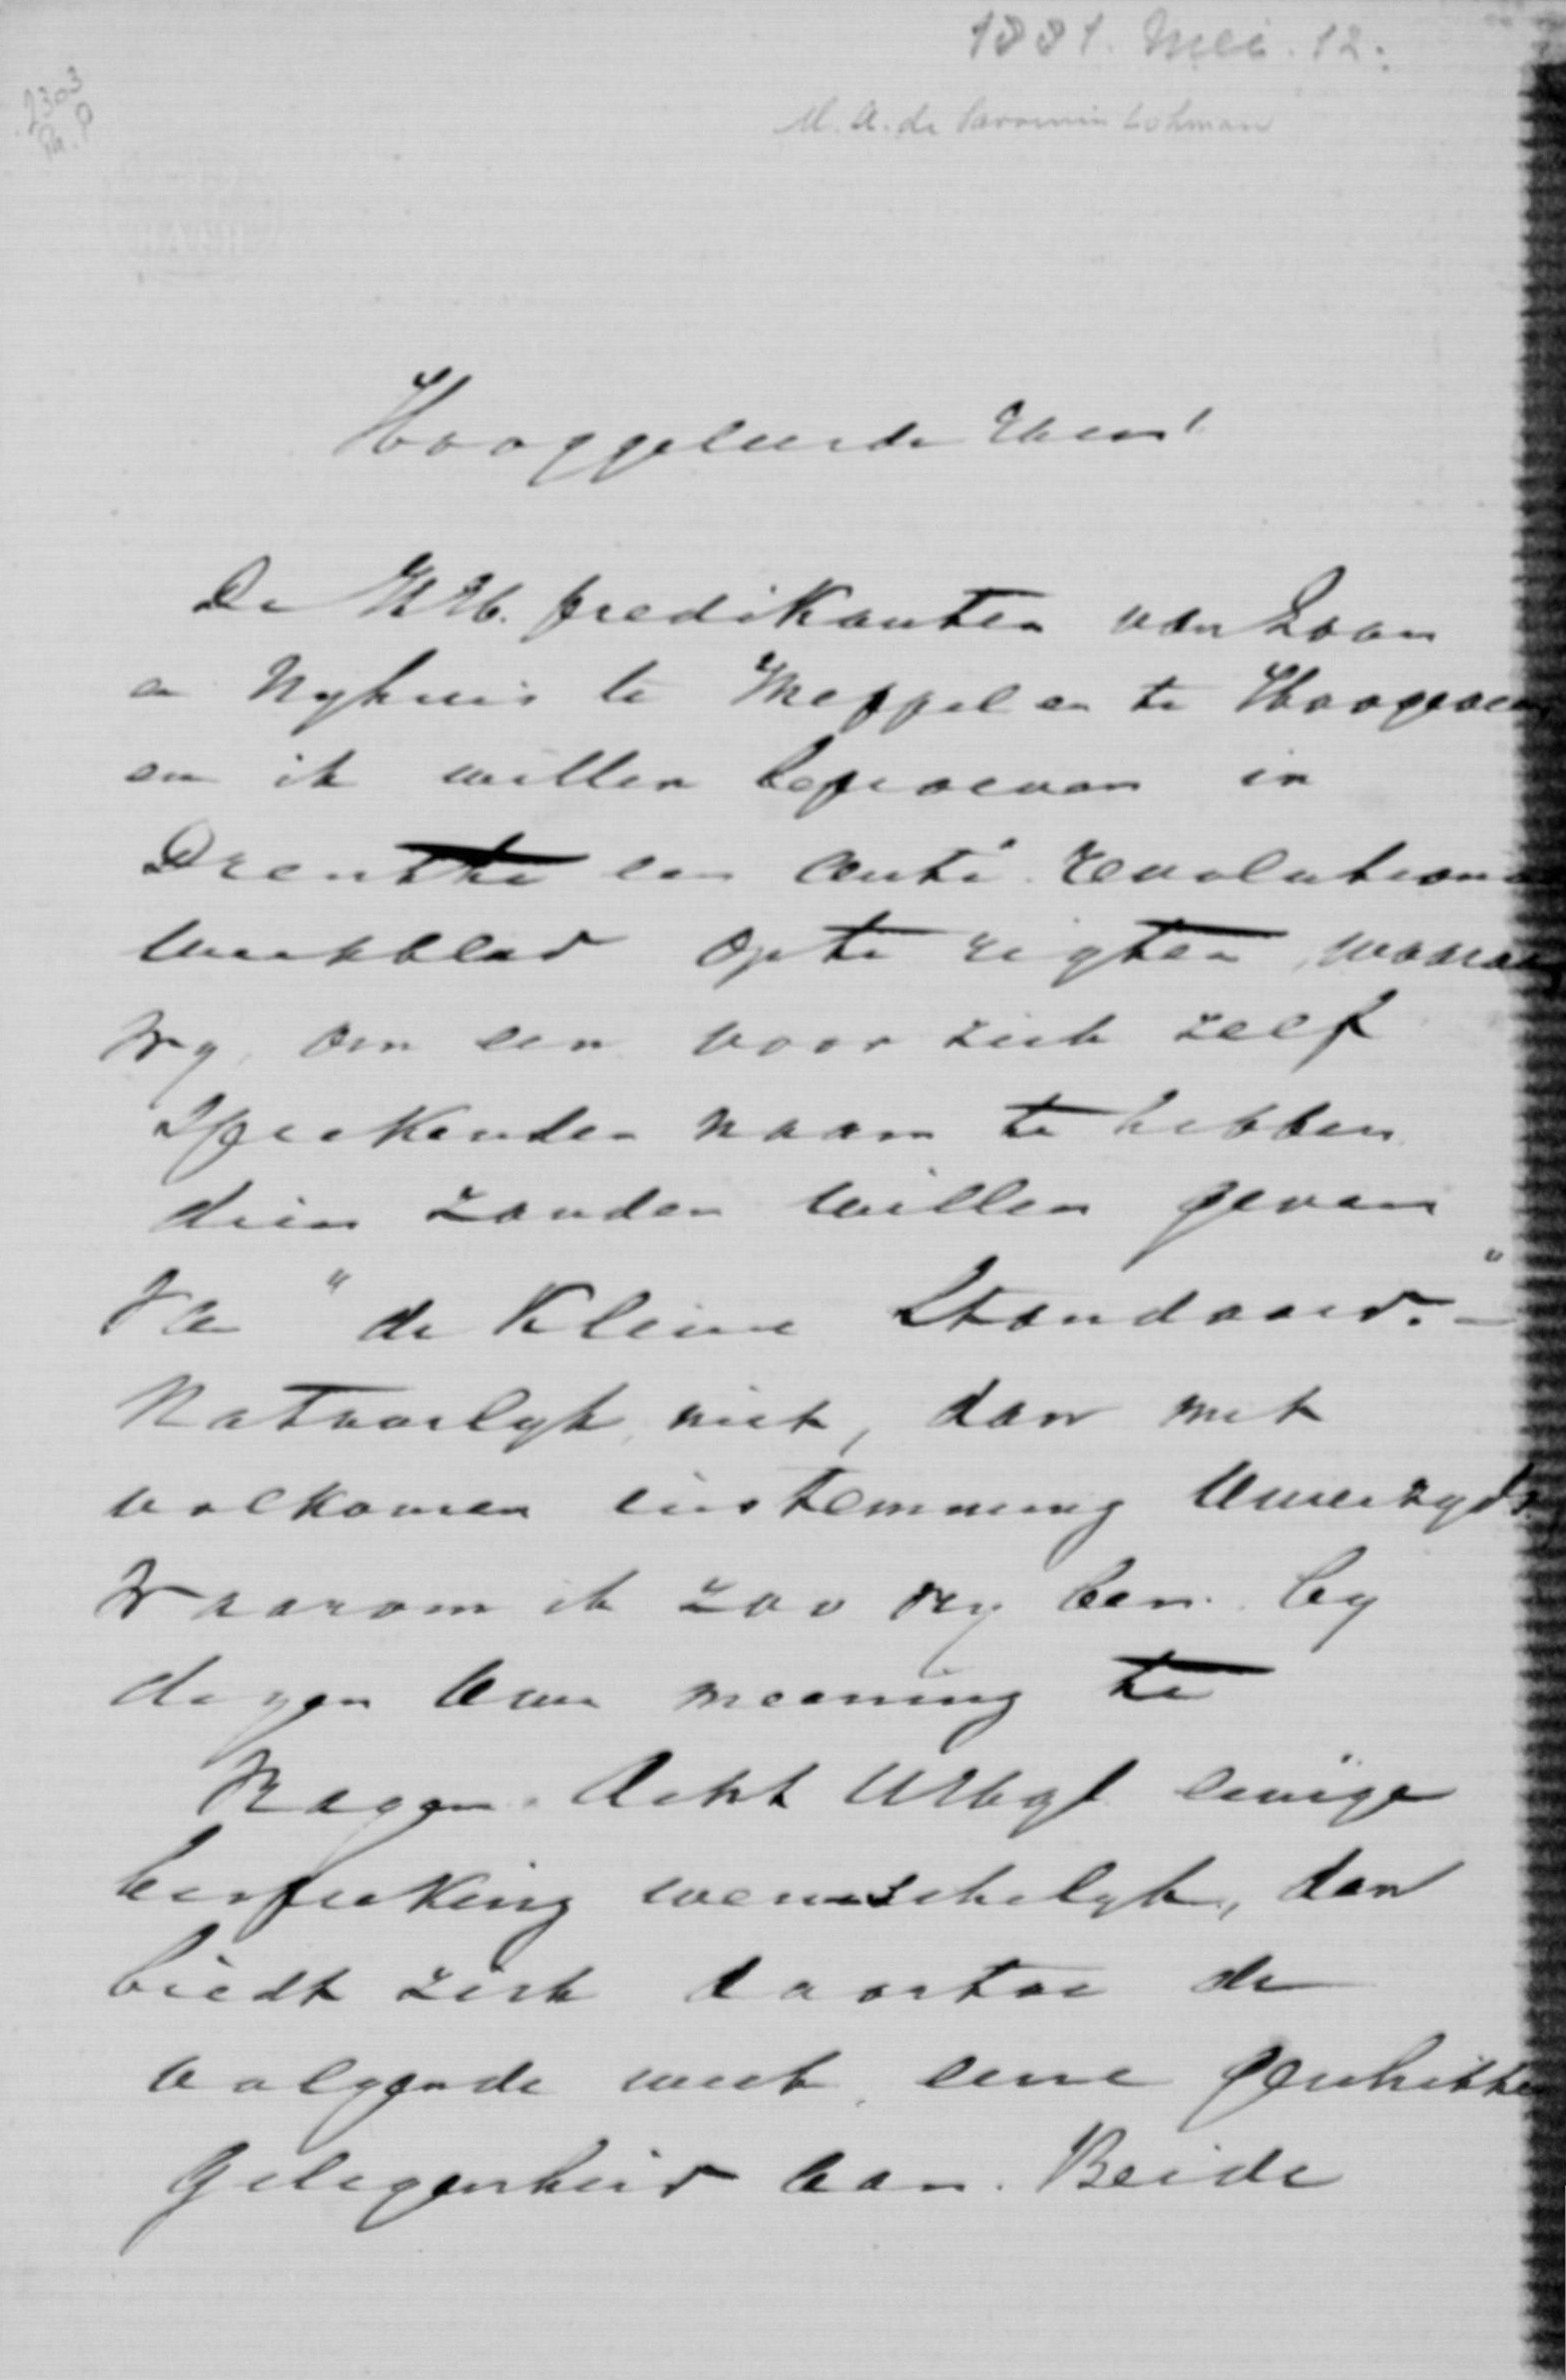 1881. Mei. 12.
M. A. de Savornin Lohman
2303
Pa. P
Hooggeleerde Heer!
De HH. predikanten van Loon
en Nyhuis te Meppel en te Hoogeveen
en ik willen beproeven in
Drenthe een Anti revolutionair
weekblad op te rigten, waaraan
wy, om een voor zich zelf
sprekenden naam te hebben
dien zouden willen geven
van "de Kleine Standaard." –
Natuurlyk niet, dan met
volkomen instemming Uwerzyds.
Waarom ik zoo vry ben. by
dezen Uwe meening te
vragen. Acht UHgl eenige
bespreking wenschelyk, dan
biedt zich daartoe de
volgende week eene geschikte
gelegenheid aan. Beide